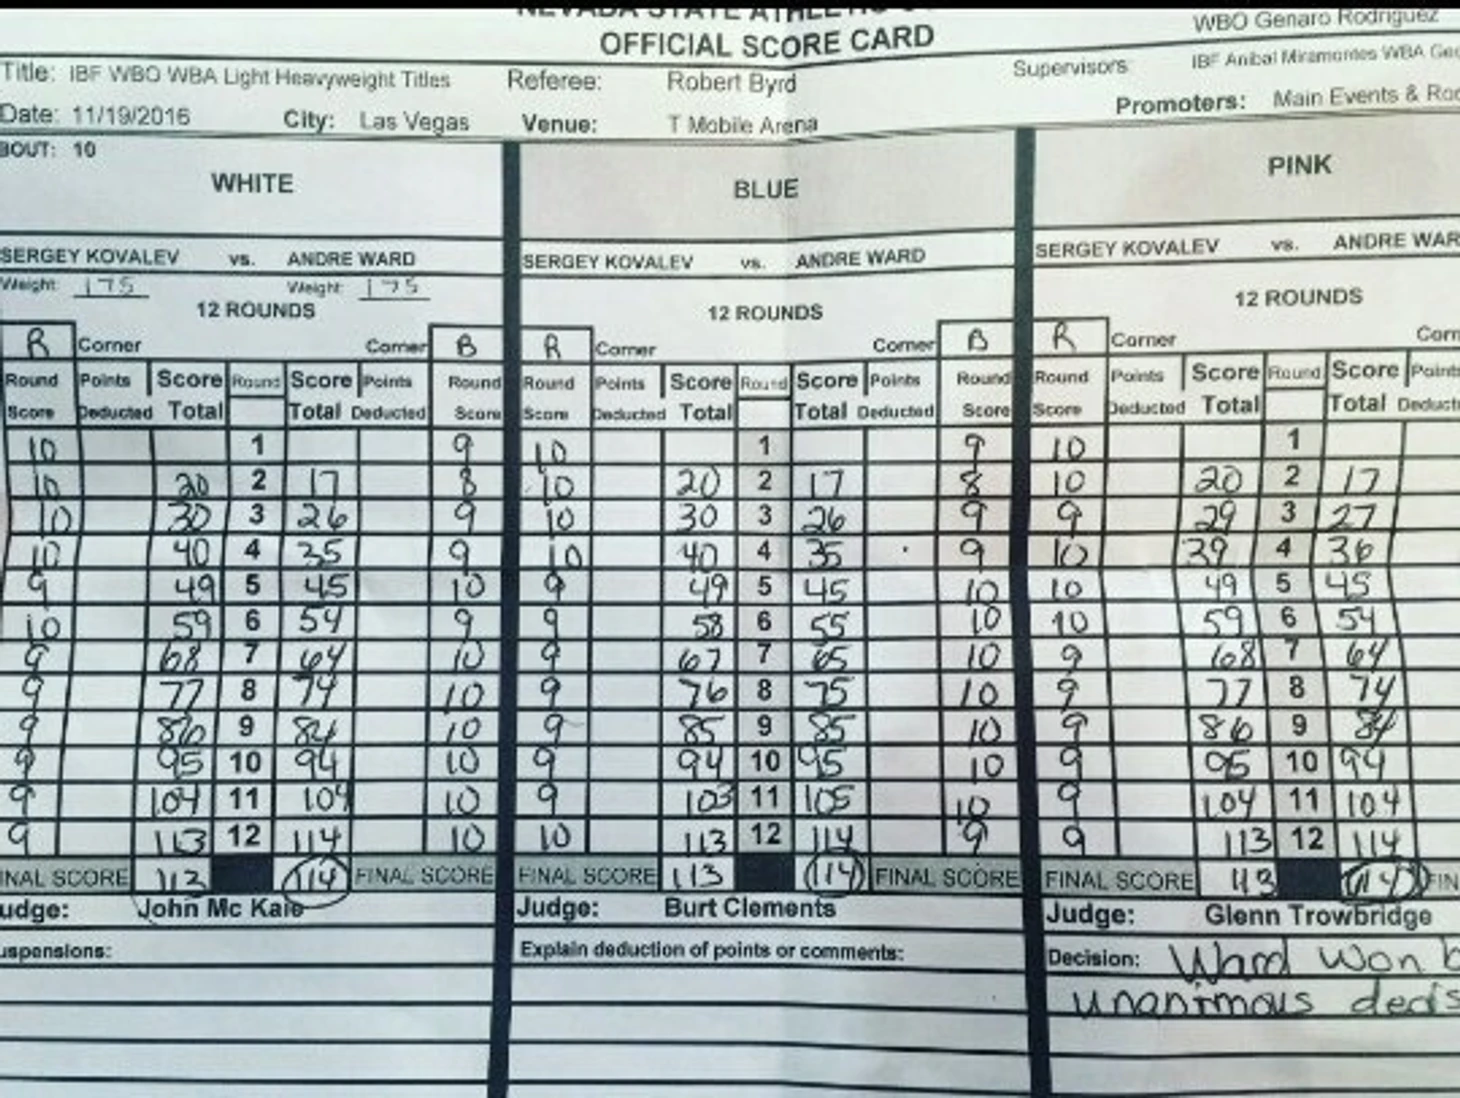 NEVADA STATE ATHLETIC
OFFICIAL SCORE CARD
WBO Genaro Rodriguez
Title: IBF WBO WBA Light Heavyweight Titles Referee: Robert Byrd Supervisors IBF Anibal Miramontes WBA Geo
Date: 11/19/2016 City: Las Vegas Venue: T Mobile Arena Promoters: Main Events & Roc
BOUT: 10
WHITE BLUE PINK
SERGEY KOVALEV vs. ANDRE WARD SERGEY KOVALEV vs. ANDRE WARD SERGEY KOVALEV vs. ANDRE WAR
Weight: 175 Weight: 175
12 ROUNDS 12 ROUNDS 12 ROUNDS
R Corner Corner B R Corner Corner B R Corner Corn
Round Points Score Round Score Points Round Round Points Score Round Score Points Round Round Points Score Round Score Points
Score Deducted Total Total Deducted Score Score Deducted Total Total Deducted Score Score Deducted Total Total Deduct
10 1 9 10 1 9 10 1
10 20 2 17 8 10 20 2 17 8 10 20 2 17
10 30 3 26 9 10 30 3 26 9 9 29 3 27
10 40 4 35 9 10 40 4 35 9 10 39 4 36
9 49 5 45 10 9 49 5 45 10 10 49 5 45
10 59 6 54 9 9 58 6 55 10 10 59 6 54
9 68 7 64 10 9 67 7 65 10 9 68 7 64
9 77 8 74 10 9 76 8 75 10 9 77 8 74
9 86 9 84 10 9 85 9 85 10 9 86 9 84
9 95 10 94 10 9 94 10 95 10 9 95 10 94
9 104 11 104 10 9 103 11 105 10 9 104 11 104
9 113 12 114 10 10 113 12 114 9 9 113 12 114
INAL SCORE 113 114 FINAL SCORE FINAL SCORE 113 114 FINAL SCORE FINAL SCORE 113 114 FIN
udge: John Mc Kaie Judge: Burt Clements Judge: Glenn Trowbridge
uspensions: Explain deduction of points or comments: Decision: Ward won b
unanimous decis